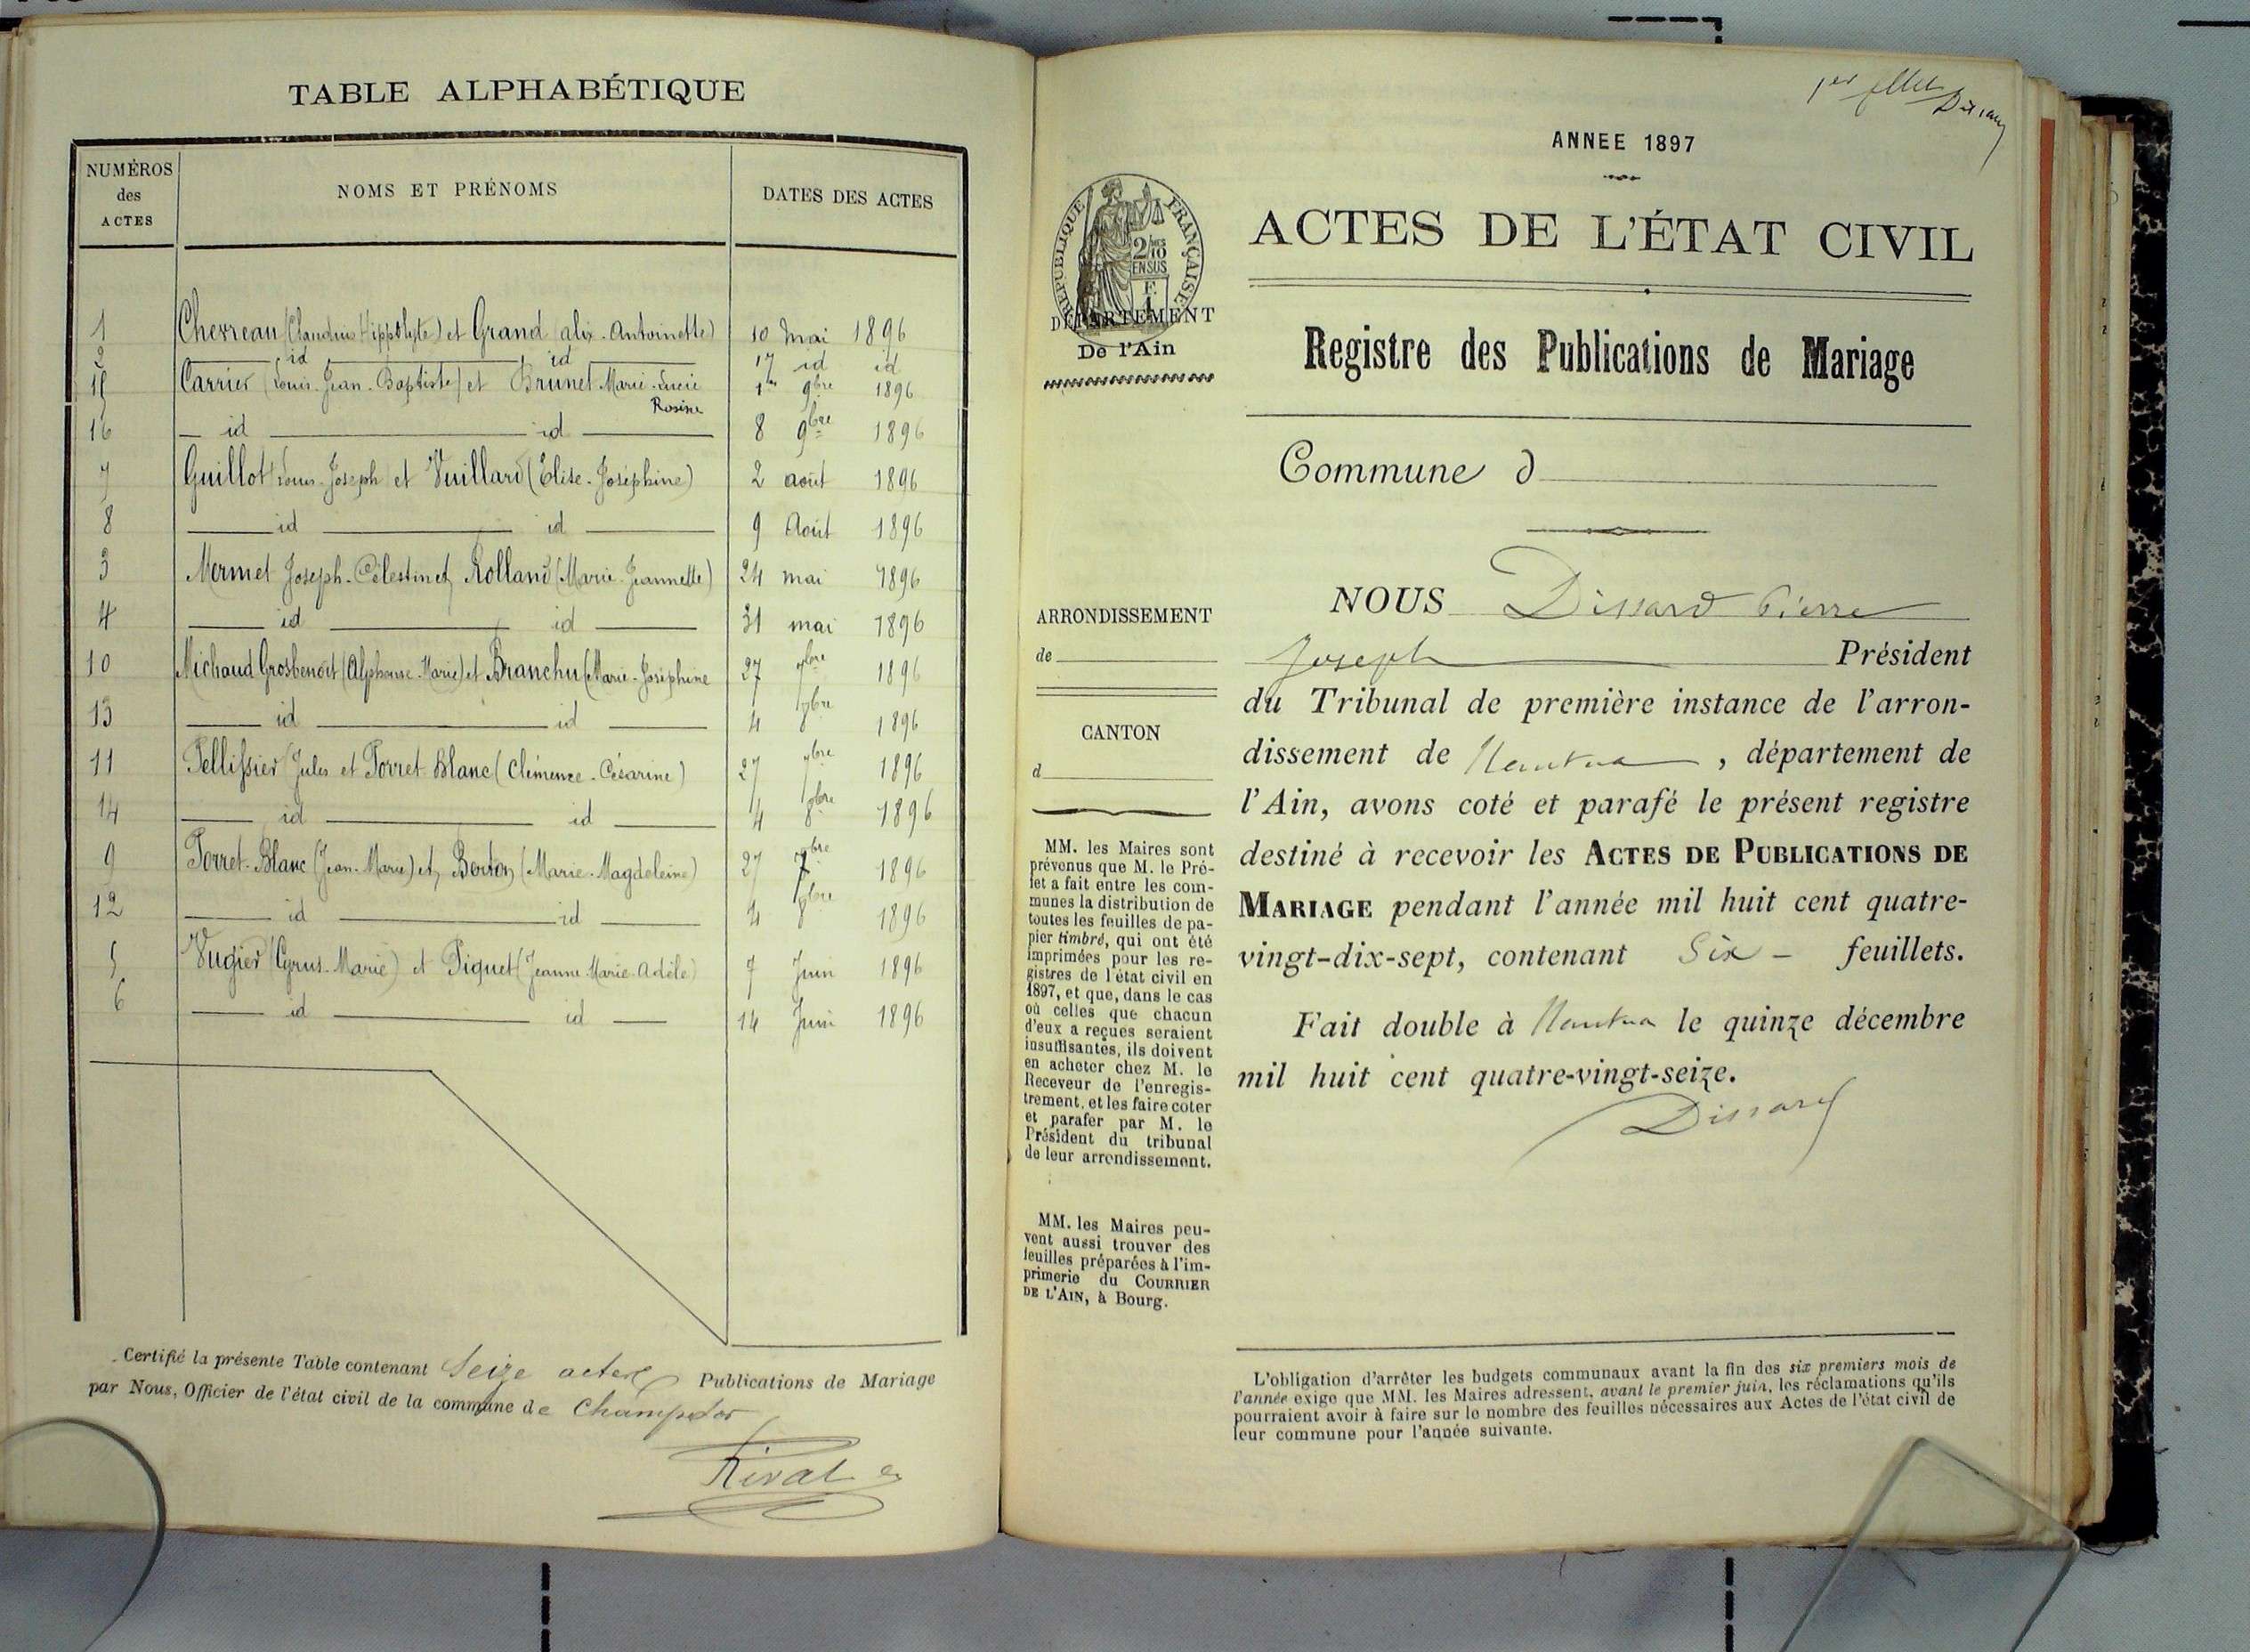 TABLE ALPHABÉTIQUE
NUMÉROS des ACTES
NOMS ET PRÉNOMS
DATES DES ACTES
1 Chevreau (Claudius Hippolyte) et Grand (alix-Antoinette) 10 mai 1896
2 id id 17 id id
15 Carrier (Louis-Jean-Baptiste) et Brunet Marie-Lucie 1er 9bre 1896
Rosine
16 id id 8 9bre 1896
7 Guillot Louis-Joseph et Vuillard (Elise-Joséphine) 2 août 1896
8 id id 9 Août 1896
3 Mermet Joseph-Célestin et Rolland (Marie-Jeannette) 24 mai 1896
4 id id 31 mai 1896
10 Michaud Grosbenoit (Alphonse-Marie) et Branchu (Marie-Joséphine 27 7bre 1896
13 id id 4 8bre 1896
11 Pellissier Jules et Porret Blanc (Clémence-Césarine) 27 7bre 1896
14 id id 4 8bre 1896
9 Porret-Blanc (Jean-Marie) et (Marie-Magdeleine) 27 7bre 1896
12 id id 4 8bre 1896
5 Vugier (Cyrus-Marie) et Piquet (Jeanne Marie-Adèle) 7 Juin 1896
6 id id 14 Juin 1896
Certifié la présente Table contenant Seize actes Publications de Mariage
par Nous, Officier de l'état civil de la commune de Champdor
Rival
1er
ANNEE 1897
RÉPUBLIQUE FRANÇAISE
2/10
EN SUS
F.
1
DÉPARTEMENT
De l'Ain
ACTES DE L'ÉTAT CIVIL
Registre des Publications de Mariage
Commune d
ARRONDISSEMENT
de
CANTON
d
MM. les Maires sont
prévenus que M. le Pré-
fet a fait entre les com-
munes la distribution de
toutes les feuilles de pa-
pier timbré, qui ont été
imprimées pour les re-
gistres de l'état civil en
1897, et que, dans le cas
où celles que chacun
d'eux a reçues seraient
insuffisantes, ils doivent
en acheter chez M. le
Receveur de l'enregis-
trement, et les faire coter
et parafer par M. le
Président du tribunal
de leur arrondissement.
MM. les Maires peu-
vent aussi trouver des
feuilles préparées à l'im-
primerie du COURRIER
DE L'AIN, à Bourg.
NOUS Dissard Pierre
Joseph Président
du Tribunal de première instance de l'arron-
dissement de Nantua, département de
l'Ain, avons coté et parafé le présent registre
destiné à recevoir les ACTES DE PUBLICATIONS DE
MARIAGE pendant l'année mil huit cent quatre-
vingt-dix-sept, contenant Six - feuillets.
Fait double à Nantua le quinze décembre
mil huit cent quatre-vingt-seize.
Dissard
L'obligation d'arrêter les budgets communaux avant la fin des six premiers mois de
l'année exige que MM. les Maires adressent, avant le premier juin, les réclamations qu'ils
pourraient avoir à faire sur le nombre des feuilles nécessaires aux Actes de l'état civil de
leur commune pour l'année suivante.